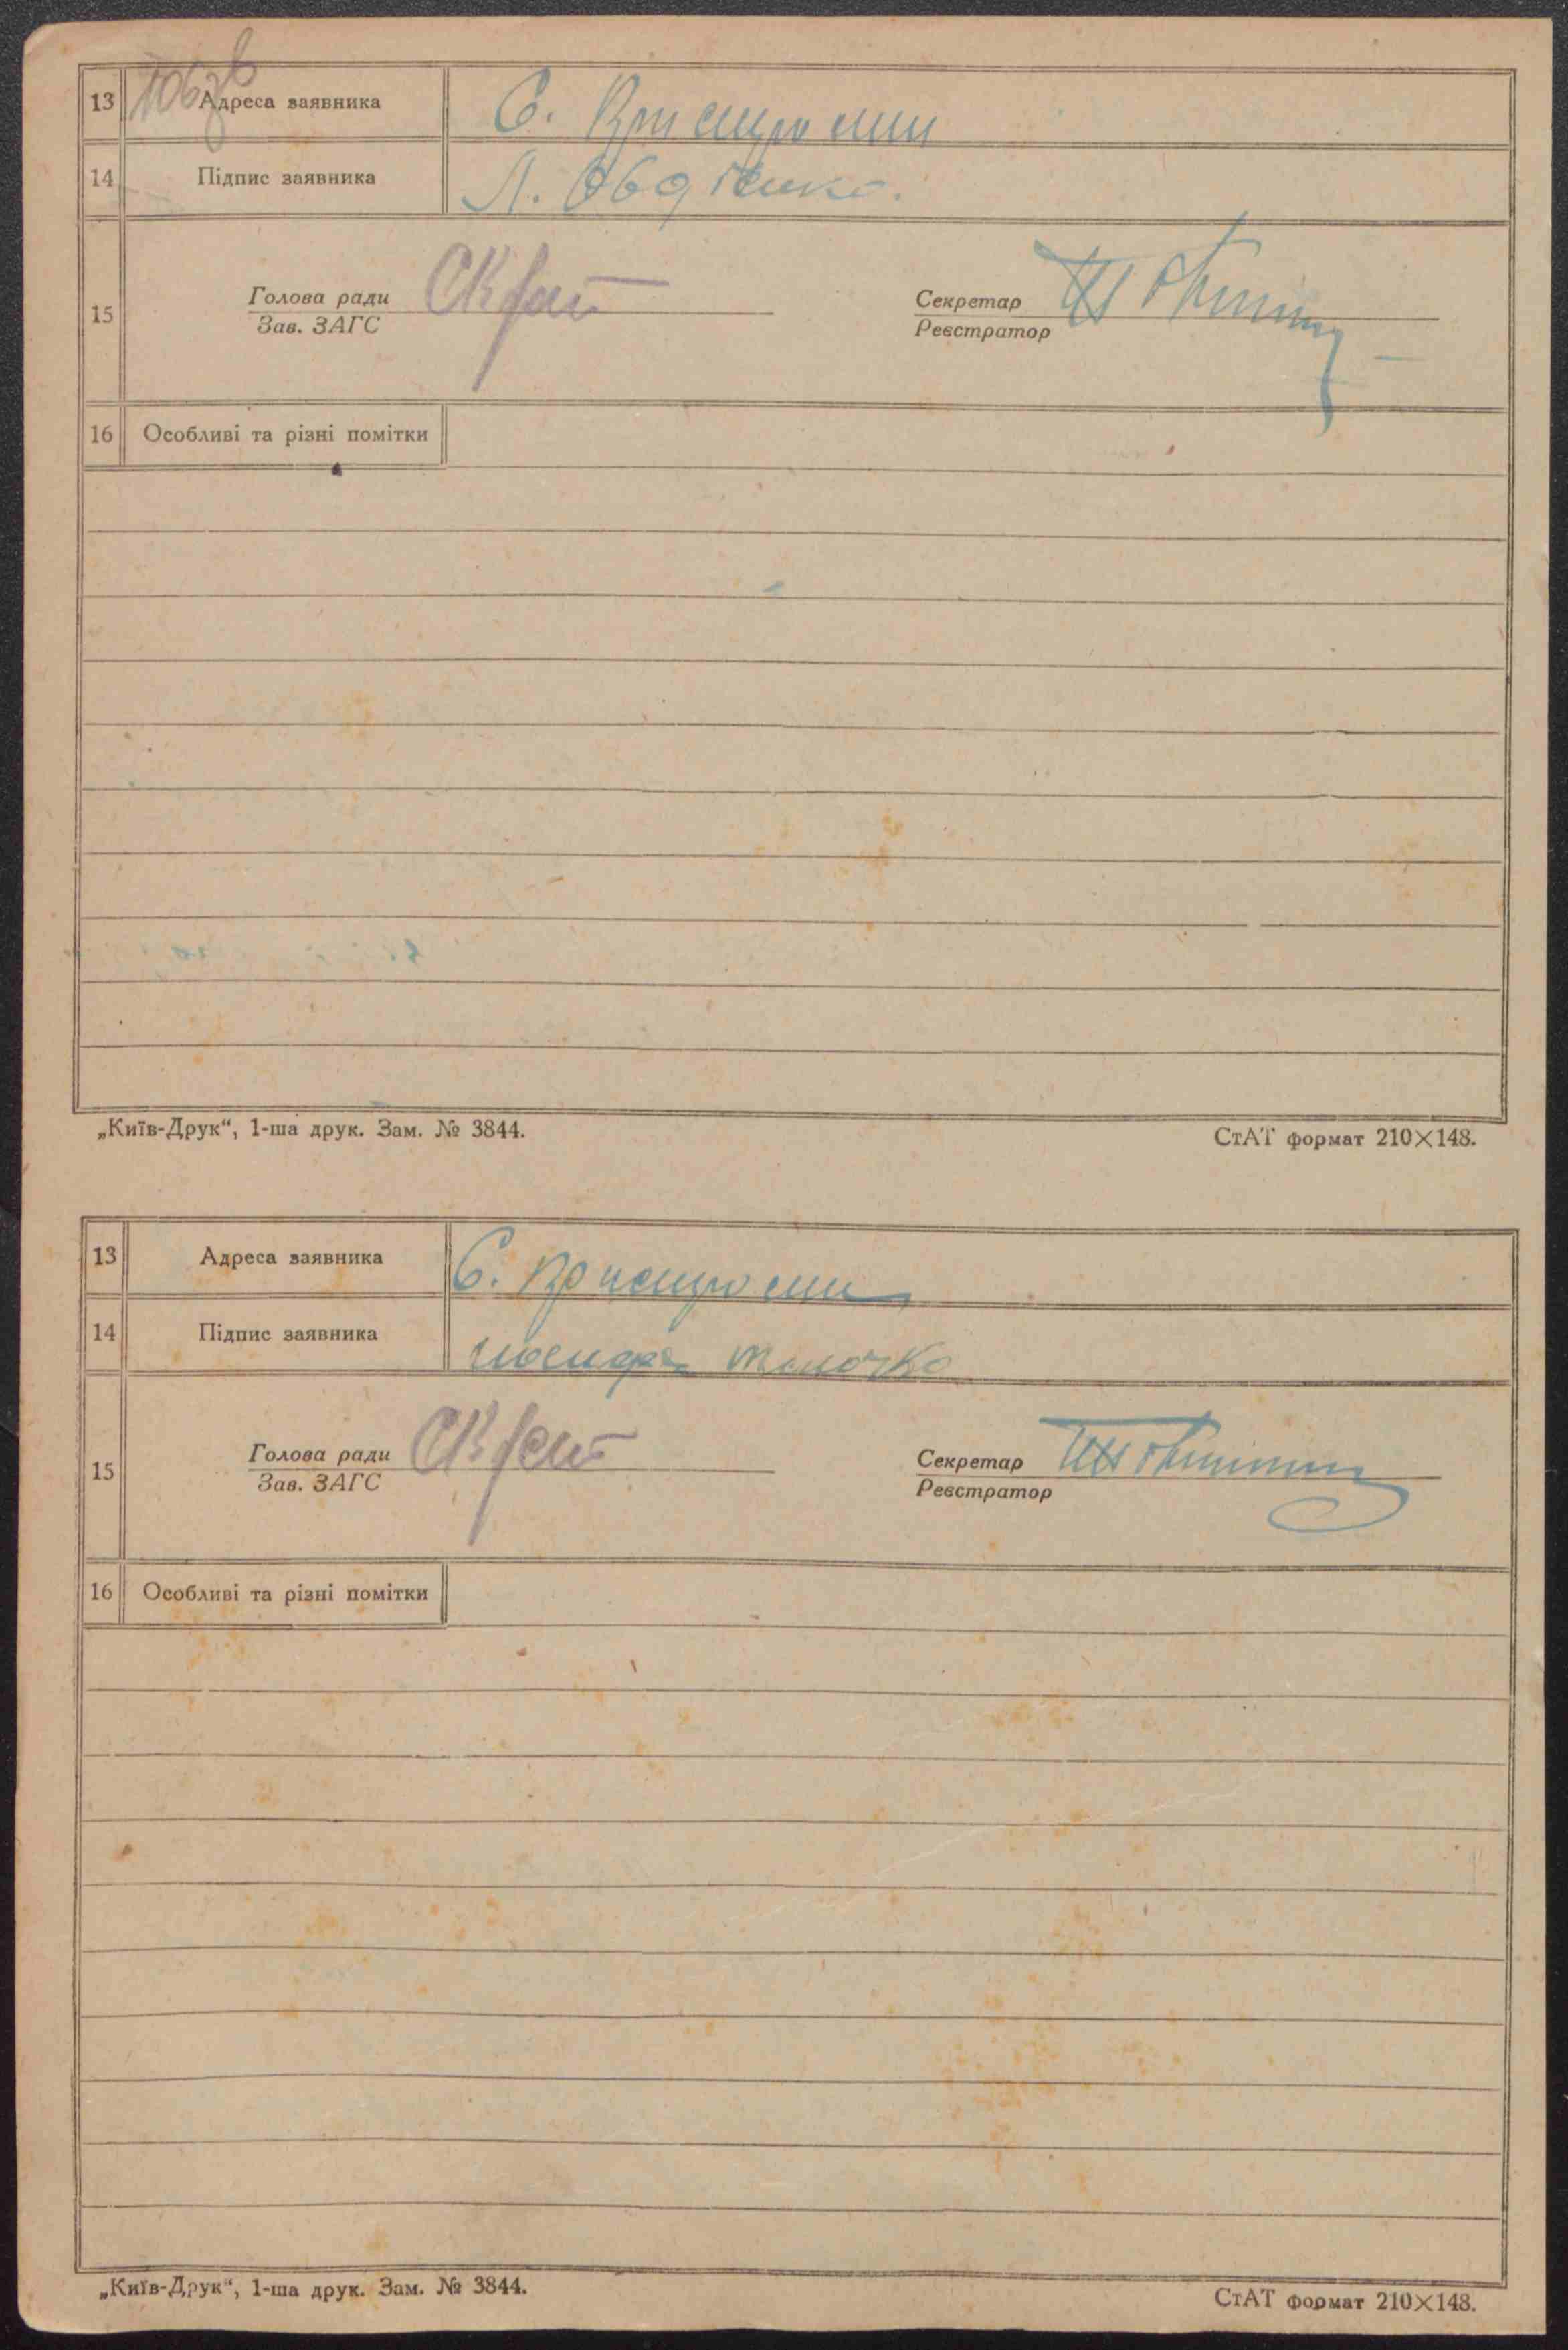 13 106зв Адреса заявника С. Кристуюсии
14 Підпис заявника Л. Овдієнко.
15 Голова ради
Зав. ЗАГС
Секретар
Реєстратор
16 Особливі та різні помітки
„Київ-Друк“, 1-ша друк. Зам. № 3844. СтАТ формат 210×148.
13 Адреса заявника С.
14 Підпис заявника
15 Голова ради
Зав. ЗАГС
Секретар
Реєстратор
16 Особливі та різні помітки
„Київ-Друк“, 1-ша друк. Зам. № 3844. СтАТ формат 210×148.